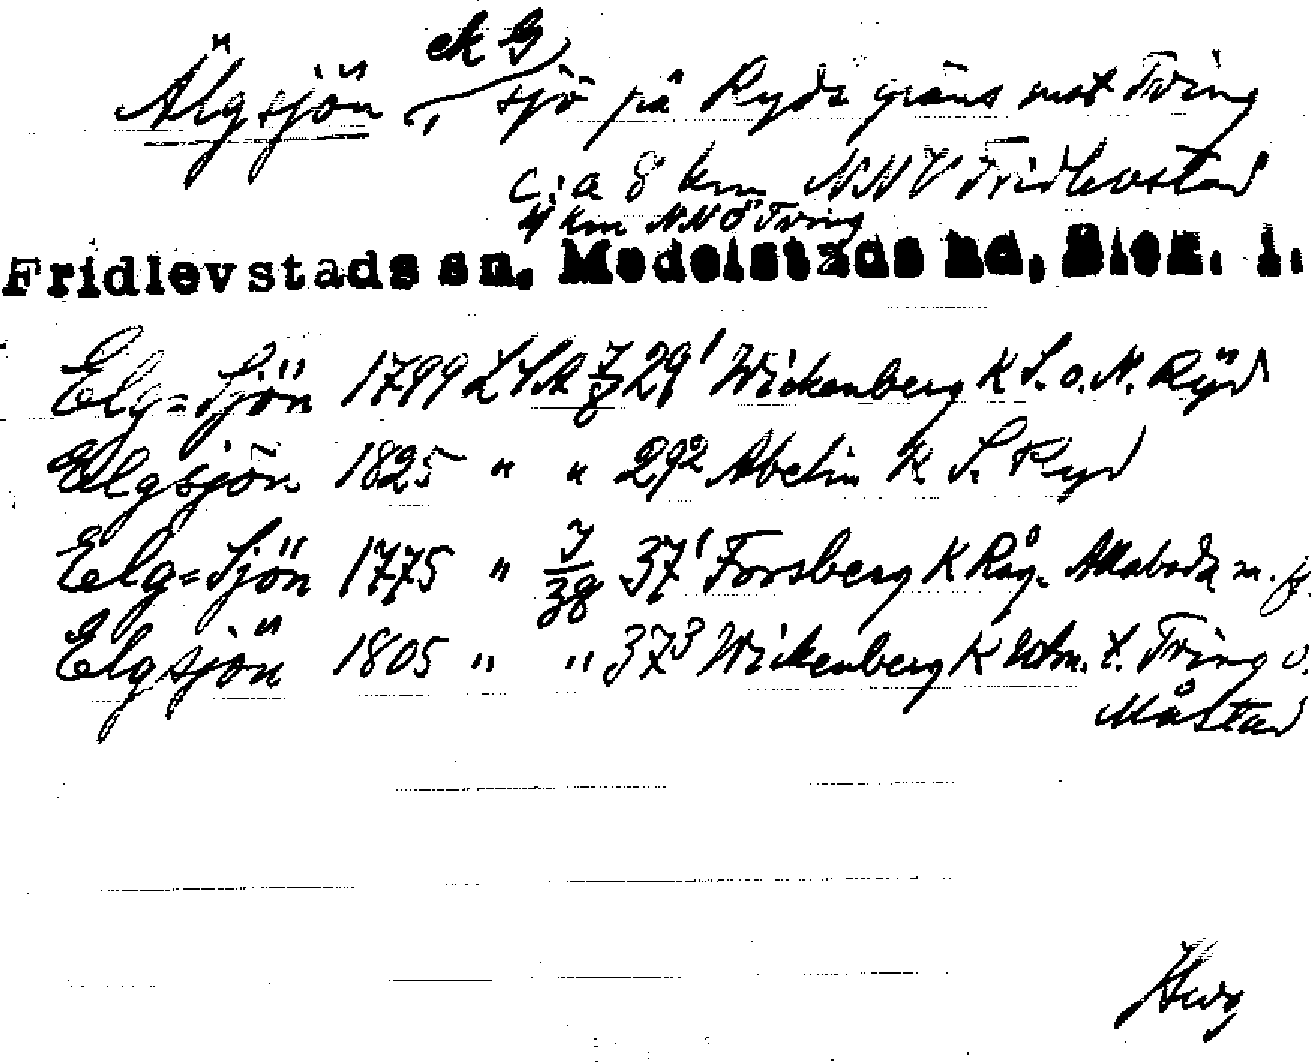 ek G
Älgsjön, sjö på Ryds gräns mot Tving
c:a 8 km NNV Fridlevstad
4 km NNÖ Tving
Fridlevstads sn. Medelstads hd, Blek. l.
Elg=Sjön 1799 LSA 7/8 29¹ Wickenberg K S. o. N. Ryd
Elgsjön 1825 " " 29² Abelin K S. Ryd
Elg=Sjön 1775 " 7/38 37¹ Forsberg K Råg. Allaboda m. fl.
Elgsjön 1805 " " 37³ Wickenberg K Utm. t. Tving o.
Måstad